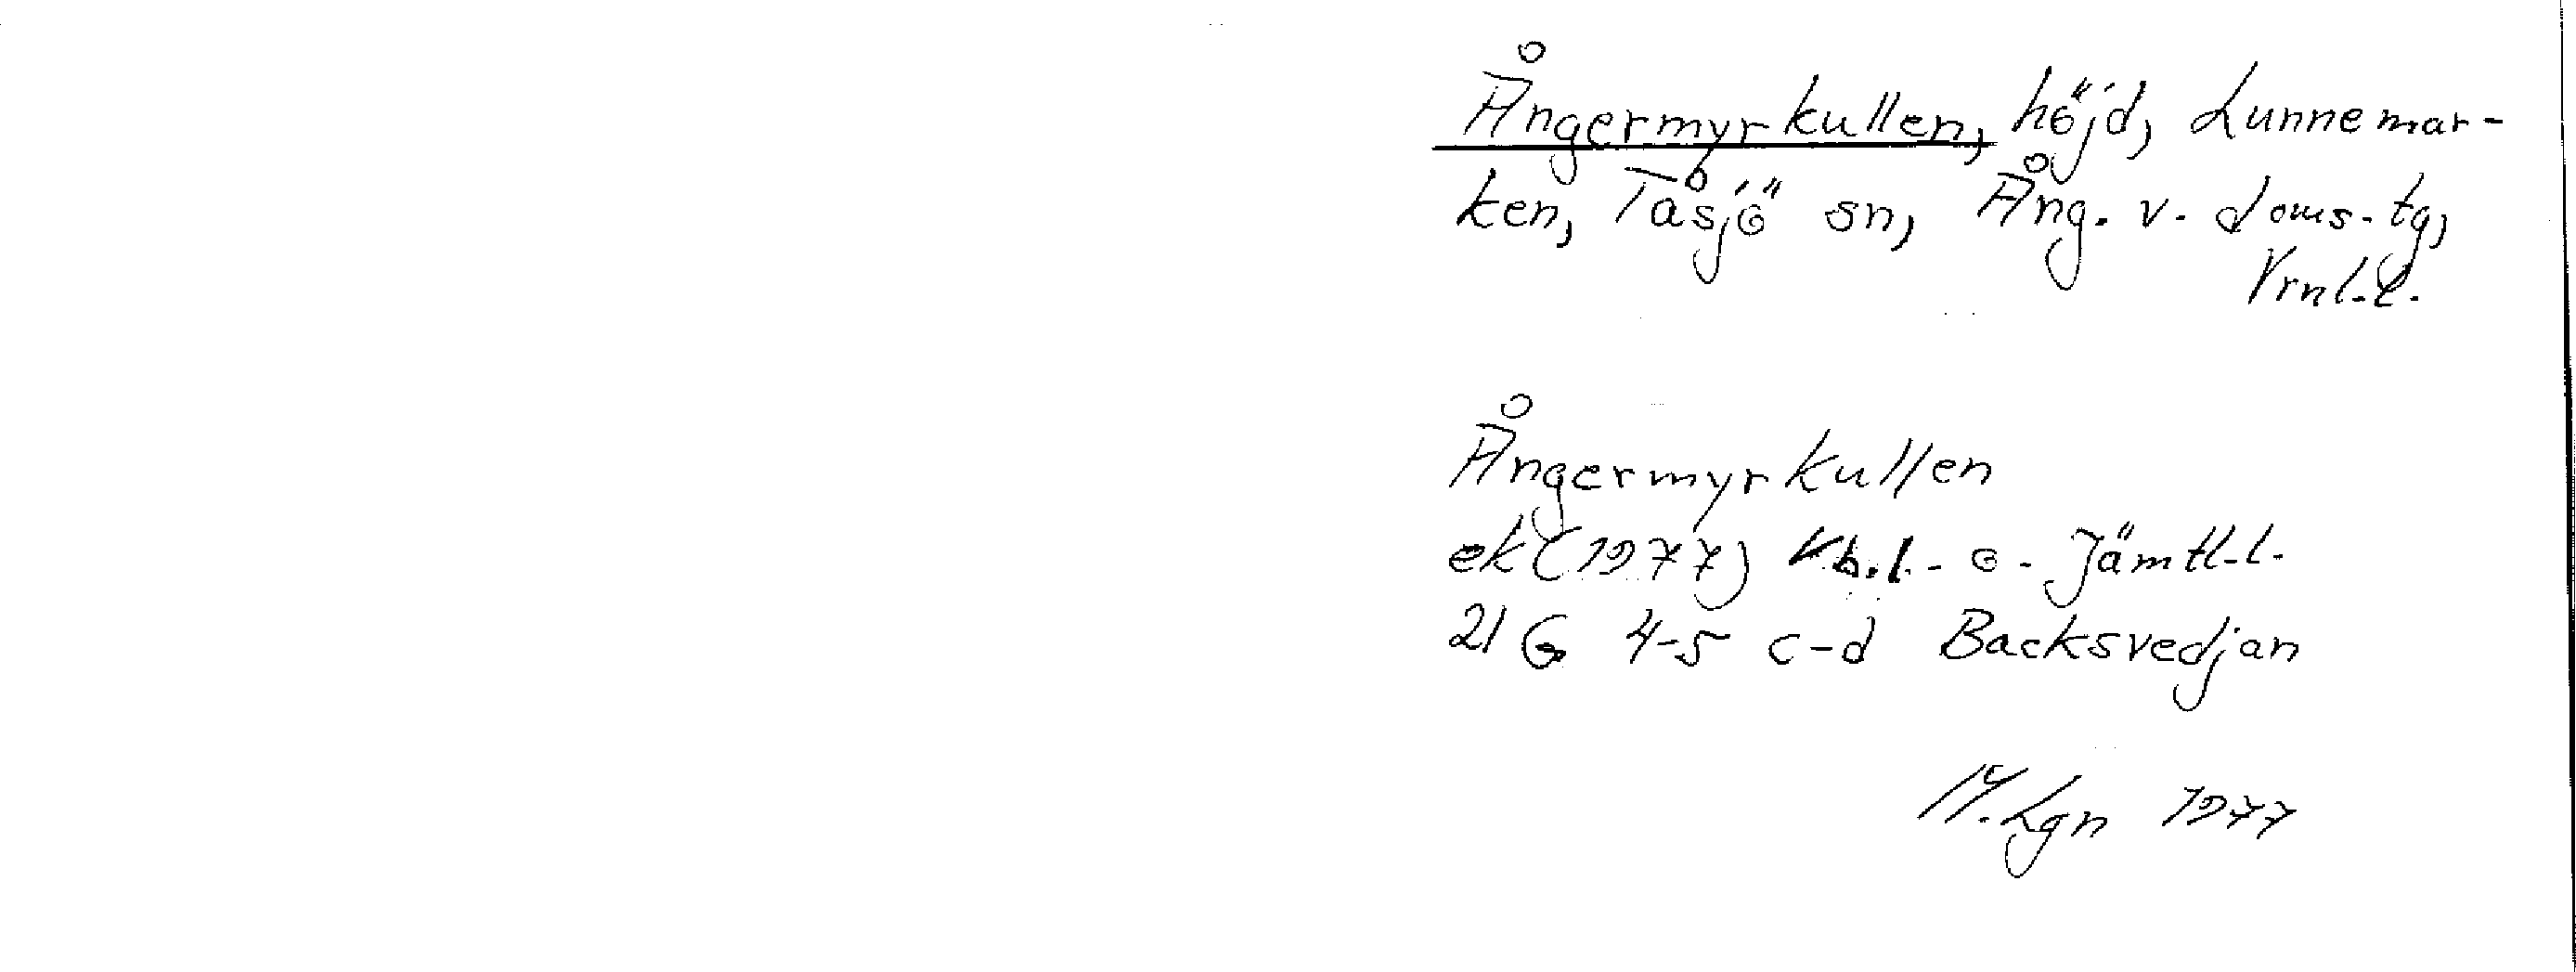 Ångermyrkullen, höjd, Lunnemar-
ken, Tåsjö sn, Ång. v. doms. tg,
Vrnl.l.
Ångermyrkullen
ek (1977) Vb.l. o. Jämtl.l.
21 G 4-5 c-d Backsvedjan
M. Lgn 1977